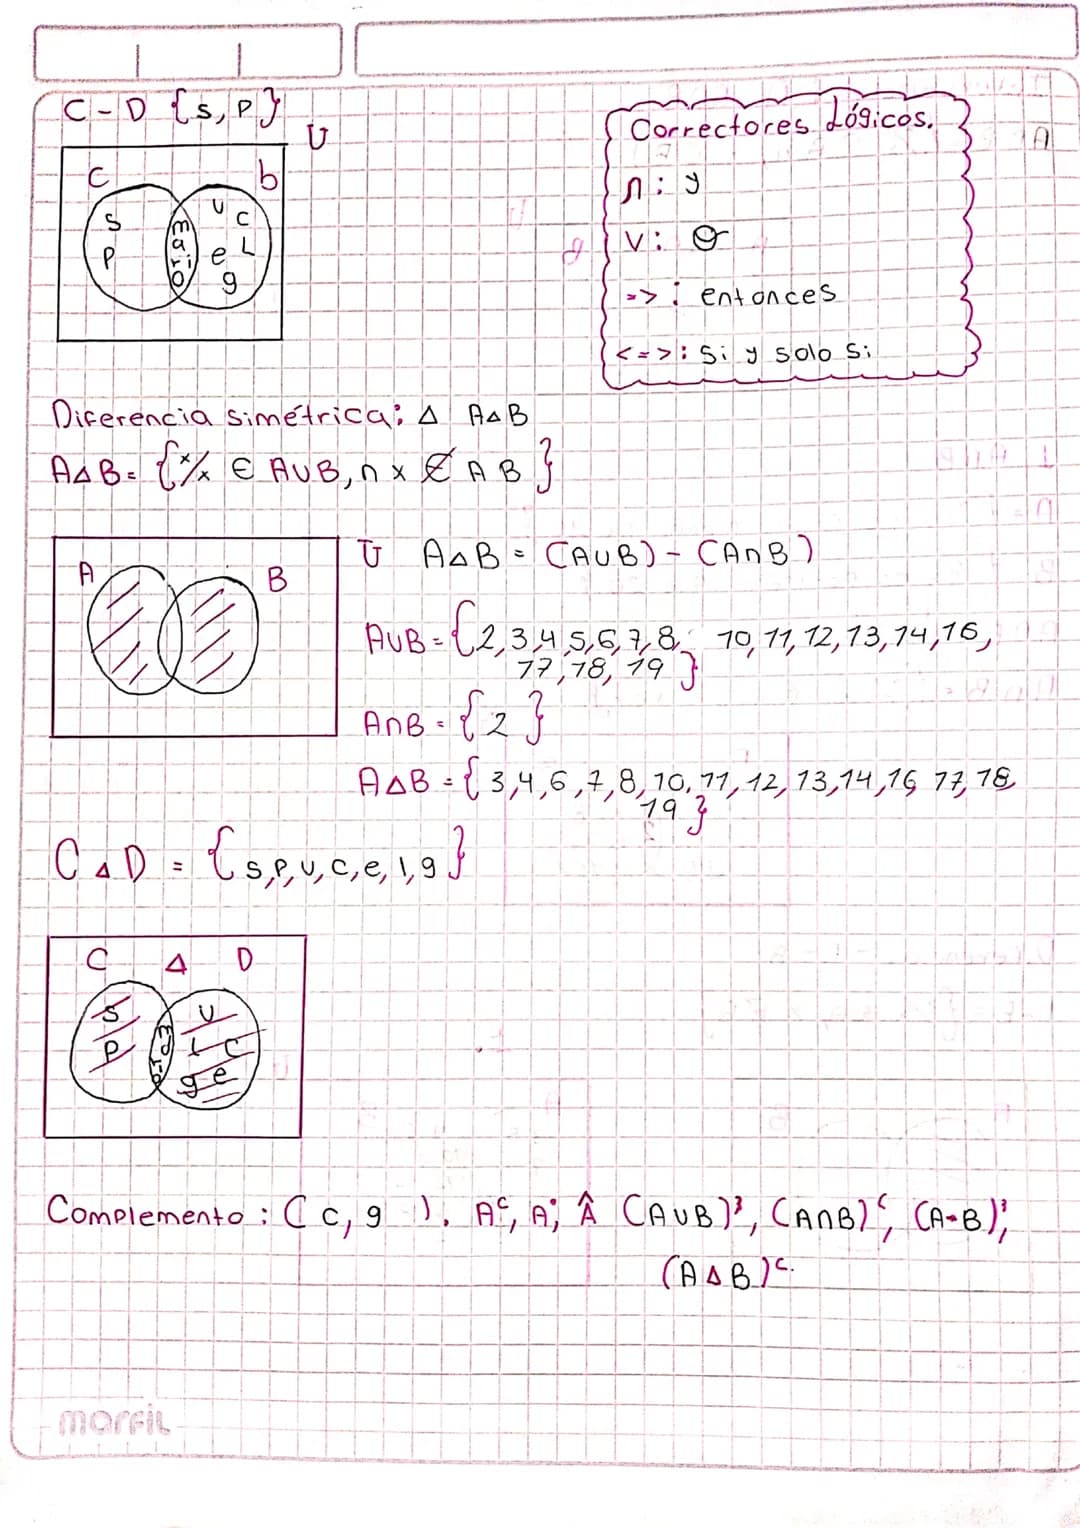 C - D {s, P}
U
C b
s
P
mario
u
c
e L
g
Correctores Lógicos.
∩ : y
v : O
=> : entonces
<=> : Si y solo Si
Diferencia simétrica: Δ AΔB
AΔB = {x/x ∈ AUB, ∩ x ∉ A B}
A B
U AΔB = (AUB) - (A∩B)
AUB = {2,3,4,5,6,7,8, 10,11,12,13,14,16,
17,18,19}
A∩B = {2}
AΔB = {3,4,6,7,8,10,11,12,13,14,16 17,18,
19}
C Δ D = {s,P,u,c,e,l,g}
C Δ D
s
P
u
l c
g e
Complemento : (c, g ). Aᶜ, A', Â (AUB)', (A∩B)ᶜ, (A-B)',
(AΔB)ᶜ.
marfil